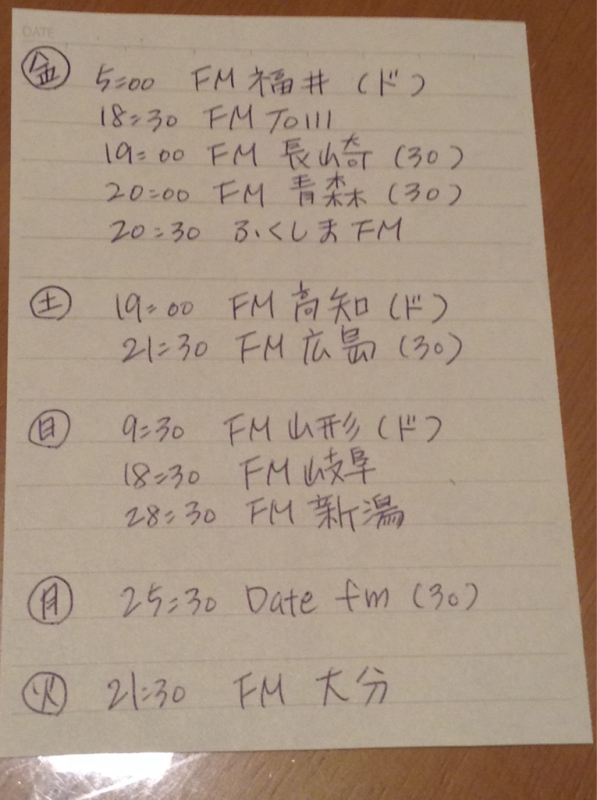 DATE
金 5:00 FM福井(ド)
18:30 FM TOIII
19:00 FM 長崎(30)
20:00 FM 青森(30)
20:30 ふくしまFM
土 19:00 FM高知(ド)
21:30 FM広島(30)
日 9:30 FM山形(ド)
18:30 FM岐阜
28:30 FM新潟
月 25:30 Date fm(30)
火 21:30 FM 大分